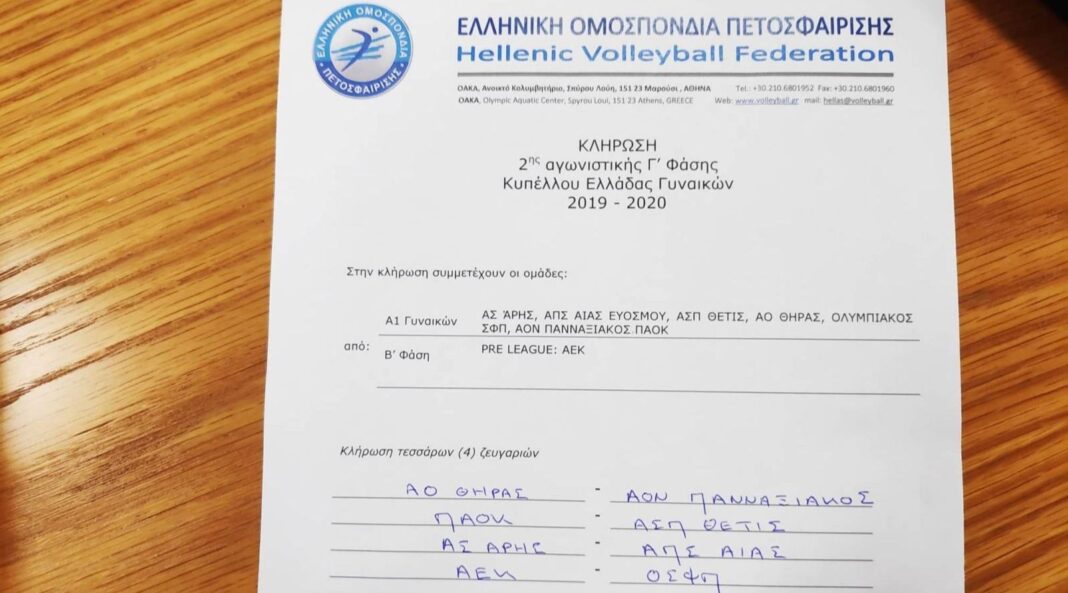 ΕΛΛΗΝΙΚΗ ΟΜΟΣΠΟΝΔΙΑ ΠΕΤΟΣΦΑΙΡΙΣΗΣ
ΕΛΛΗΝΙΚΗ ΟΜΟΣΠΟΝΔΙΑ ΠΕΤΟΣΦΑΙΡΙΣΗΣ
Hellenic Volleyball Federation
ΟΑΚΑ, Ανοικτό Κολυμβητήριο, Σπύρου Λούη, 151 23 Μαρούσι, ΑΘΗΝΑ Tel.: +30.210.6801952 Fax: +30.210.6801960
ΟΑΚΑ, Olympic Aquatic Center, Spyrou Loui, 151 23 Athens, GREECE Web: www.volleyball.gr mail: hellas@volleyball.gr
ΚΛΗΡΩΣΗ
2ης αγωνιστικής Γ' Φάσης
Κυπέλλου Ελλάδας Γυναικών
2019 - 2020
Στην κλήρωση συμμετέχουν οι ομάδες:
Α1 Γυναικών ΑΣ ΆΡΗΣ, ΑΠΣ ΑΙΑΣ ΕΥΟΣΜΟΥ, ΑΣΠ ΘΕΤΙΣ, ΑΟ ΘΗΡΑΣ, ΟΛΥΜΠΙΑΚΟΣ
ΣΦΠ, ΑΟΝ ΠΑΝΝΑΞΙΑΚΟΣ ΠΑΟΚ
από:
Β' Φάση PRE LEAGUE: ΑΕΚ
Κλήρωση τεσσάρων (4) ζευγαριών
ΑΟ ΘΗΡΑΣ - ΑΟΝ ΠΑΝΝΑΞΙΑΚΟΣ
ΠΑΟΚ - ΑΣΠ ΘΕΤΙΣ
ΑΣ ΑΡΗΣ - ΑΠΣ ΑΙΑΣ
ΑΕΚ - ΟΣΦΠ